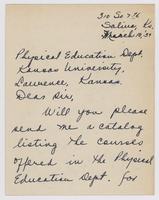 310 So 7th
Salina, Ks.
March 19, 39
Physical Education Dept.
Kansas University,
Lawrence, Kansas.
Dear Sir,
Will you please
send me a catalog
listing the courses
offered in the Physical
Education Dept. for